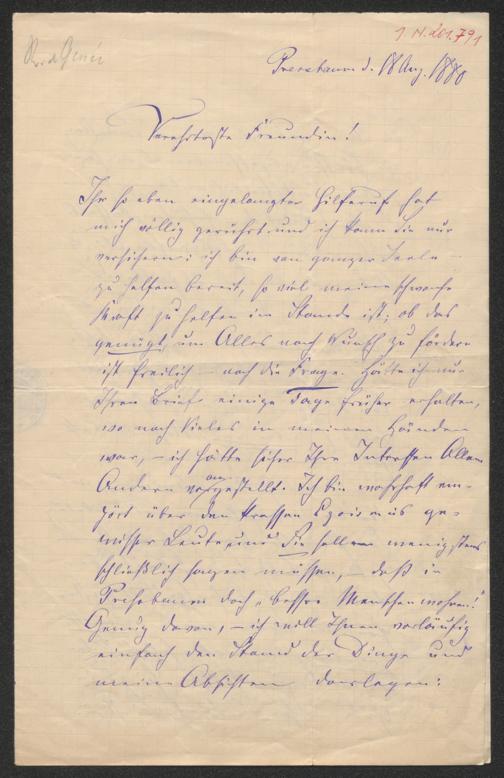 I. N. 201.791
Rud. Genée
Pressbaum d. 18 Aug. 1880
Verehrteste Freundin!
Ihr so eben eingelangter Hilferuf hat
mich völlig gerührt und ich kann Sie nur
versichern: ich bin von ganzer Seele
zu helfen bereit, so viel meine schwache
Kraft zu helfen im Stande ist; ob das
genügt, um Alles nach Wunsch zu fördern
ist freilich noch die Frage. Hätte ich nur
Ihren Brief einige Tage früher erhalten,
wo noch Vieles in meinen Händen
war, – ich hätte sicher Ihre Interessen Allem
Andern vorangestellt. Ich bin wahrhaft em-
pört über den krassen Egoismus ge-
wisser Leute, und Sie sollen wenigstens
schließlich sagen müssen, daß in
Pressbaum doch „bessre Menschen wohnen"!
Genug davon, – ich will Ihnen vorläufig
einfach den Stand der Dinge und
meine Absichten darlegen: